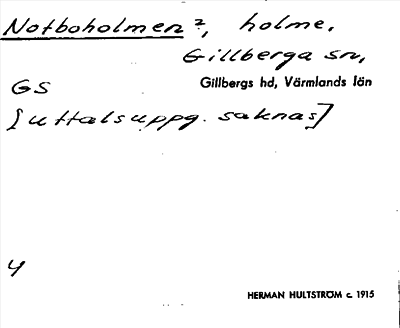 Notboholmen?, holme,
Gillberga sn,
GS Gillbergs hd, Värmlands län
[uttalsuppg. saknas]
4
HERMAN HULTSTRÖM c. 1915